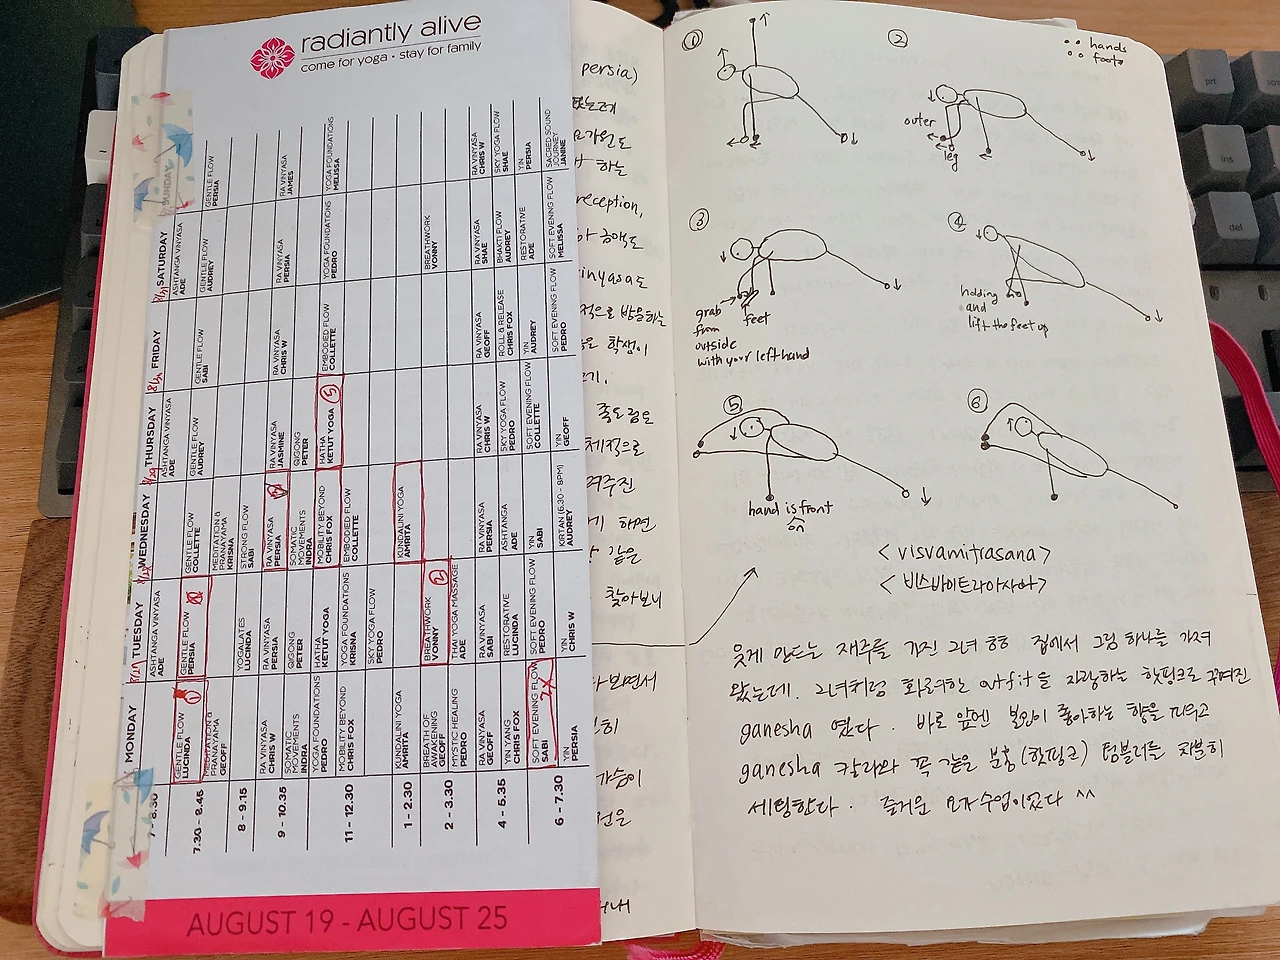 radiantly alive
come for yoga • stay for family
SUNDAY
GENTLE FLOW
PERSIA
RA VINYASA
JAMES
YOGA FOUNDATIONS
MELISSA
RA VINYASA
CHRIS W
SKY YOGA FLOW
SHAE
YIN
PERSIA
SACRED SOUND
JOURNEY
JANINE
SATURDAY
ASHTANGA VINYASA
ADE
GENTLE FLOW
AUDREY
RA VINYASA
PERSIA
YOGA FOUNDATIONS
PEDRO
BREATHWORK
VONNY
RA VINYASA
SHAE
BHAKTI FLOW
AUDREY
RESTORATIVE
ADE
SOFT EVENING FLOW
MELISSA
FRIDAY
GENTLE FLOW
SABI
RA VINYASA
CHRIS W
EMBODIED FLOW
COLLETTE
RA VINYASA
GEOFF
ROLL & RELEASE
CHRIS FOX
YIN
AUDREY
SOFT EVENING FLOW
PEDRO
THURSDAY
ASHTANGA VINYASA
ADE
GENTLE FLOW
AUDREY
RA VINYASA
JASMINE
QIGONG
PETER
HATHA
KETUT YOGA
⑤
RA VINYASA
CHRIS W
SKY YOGA FLOW
PEDRO
SOFT EVENING FLOW
COLLETTE
YIN
GEOFF
WEDNESDAY
GENTLE FLOW
COLLETTE
MEDITATION &
PRANAYAMA
KRISNA
STRONG FLOW
SABI
RA VINYASA
PERSIA
SOMATIC
MOVEMENTS
INDRA
MOBILITY BEYOND
CHRIS FOX
EMBODIED FLOW
COLLETTE
KUNDALINI YOGA
AMRITA
RA VINYASA
PERSIA
ASHTANGA
ADE
YIN
SABI
KIRTAN (6.30 - 8PM)
AUDREY
TUESDAY
ASHTANGA VINYASA
ADE
GENTLE FLOW
PERSIA
YOGALATES
LUCINDA
RA VINYASA
PERSIA
QIGONG
PETER
HATHA
KETUT YOGA
YOGA FOUNDATIONS
KRISNA
SKY YOGA FLOW
PEDRO
BREATHWORK
VONNY
②
THAI YOGA MASSAGE
ADE
RA VINYASA
SABI
RESTORATIVE
LUCINDA
SOFT EVENING FLOW
PEDRO
YIN
CHRIS W
MONDAY
GENTLE FLOW
LUCINDA
①
MEDITATION &
PRANAYAMA
GEOFF
RA VINYASA
CHRIS W
SOMATIC
MOVEMENTS
INDRA
YOGA FOUNDATIONS
PEDRO
MOBILITY BEYOND
CHRIS FOX
KUNDALINI YOGA
AMRITA
BREATH OF
AWAKENING
GEOFF
MYSTIC HEALING
PEDRO
RA VINYASA
GEOFF
YIN YANG
CHRIS FOX
SOFT EVENING FLOW
SABI
YIN
PERSIA
7 - 8.30
7.30 - 8.45
8 - 9.15
9 - 10.35
11 - 12.30
1 - 2.30
2 - 3.30
4 - 5.35
6 - 7.30
AUGUST 19 - AUGUST 25
persia)
하는
reception,
금액도
vinyasa도
적으로 반응하는
학생이
졸도림은
체적으로
려주진
게 하면
같은
찾아보니
보면서
가슴이
① ②
hands
foots
outer
leg
③ ④
grab
from
outside
with your left hand
feet
holding
and
lift the feet up
⑤ ⑥
hand is front
on
< visvamitrasana >
< 비스바미트라아사나 >
웃게 만드는 재주를 가진 그녀 ㅎㅎ 집에서 그림 하나를 가져
왔는데. 그녀처럼 화려한 outfit을 자랑하는 핫핑크로 꾸며진
ganesha 였다. 바로 앞엔 본인이 좋아하는 향을 피우고
ganesha 칼라와 꼭 같은 분홍(핫핑크) 텀블러를 차분히
세팅한다. 즐거운 요가수업이었다 ^^
prt
ins
del